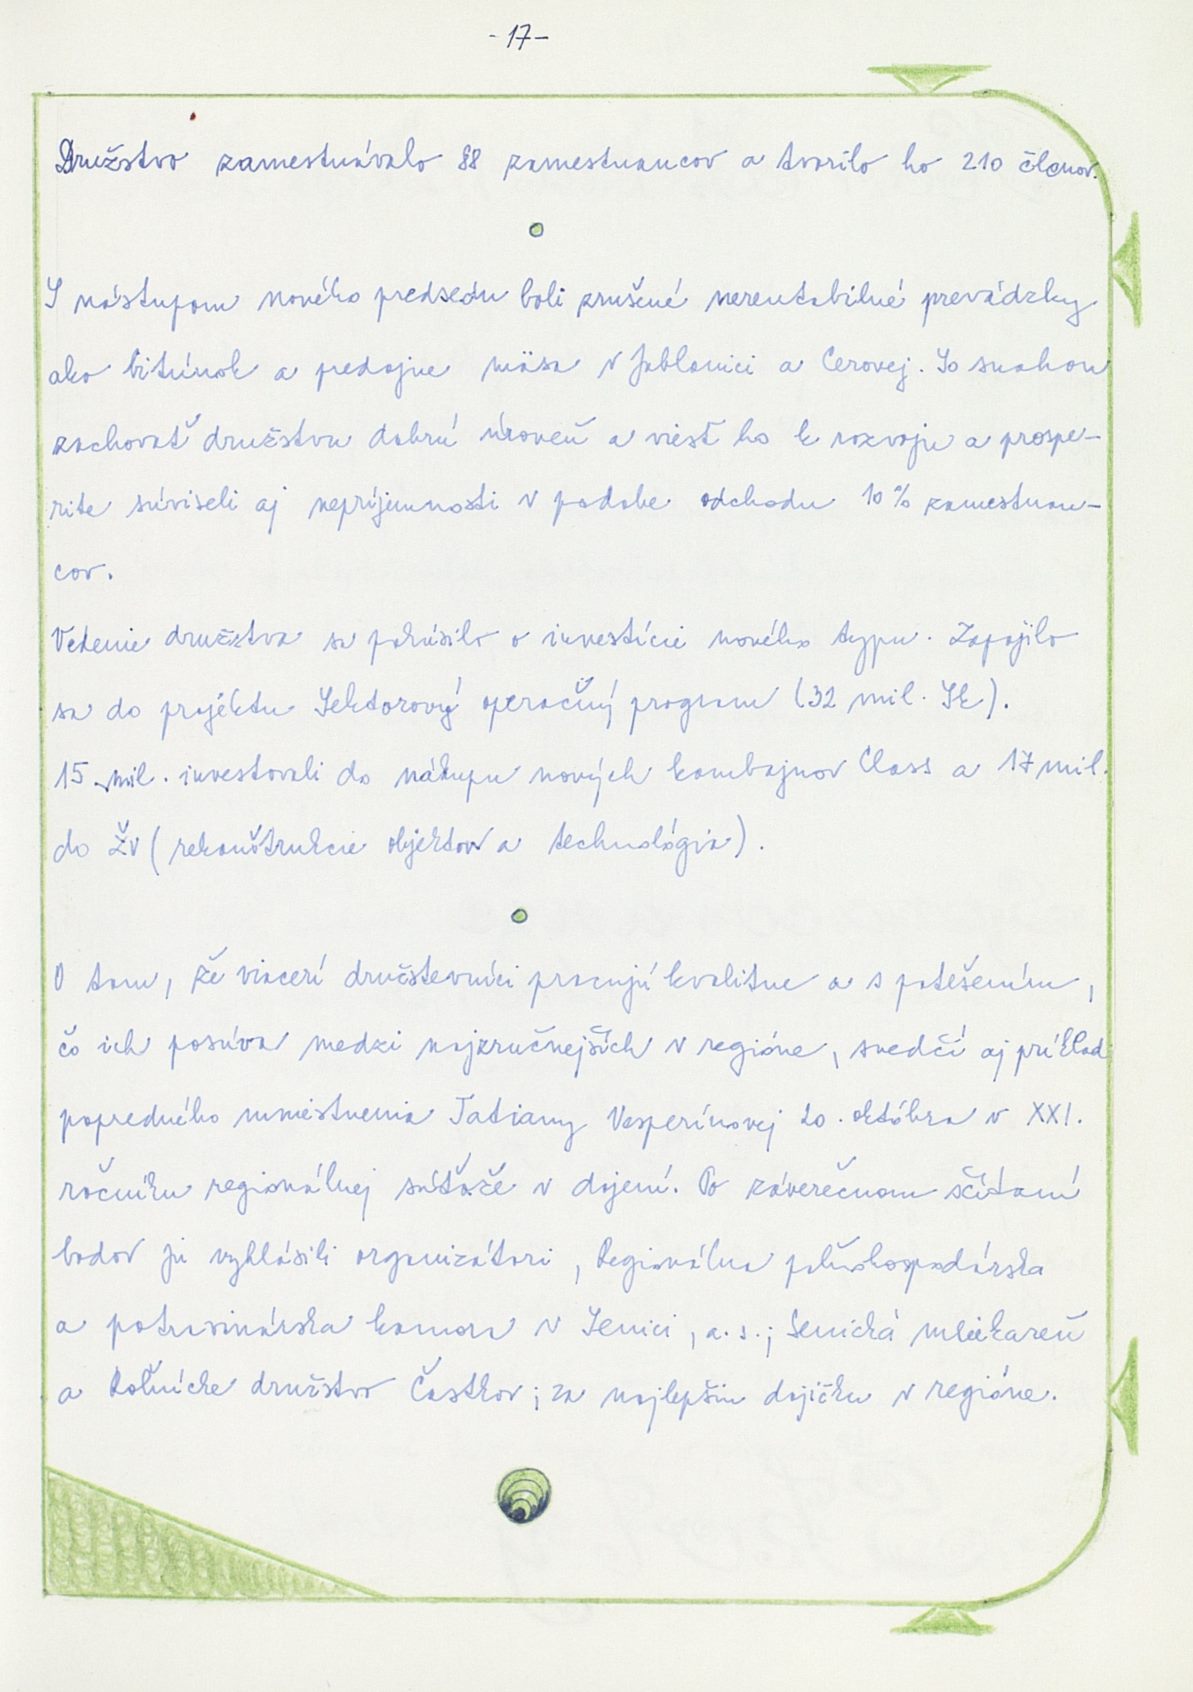 - 17 -
Družstvo zamestnávalo 88 zamestnancov a tvorilo ho 210 členov.
S nástupom nového predsedu boli zrušené nerentabilné prevádzky
ako bitúnok a predajne mäsa v Jablonici a Cerovej. So snahou
zachovať družstvu dobrú úroveň a viesť ho k rozvoju a prospe-
rite súviseli aj nepríjemnosti v podobe odchodu 10% zamestnan-
cov.
Vedenie družstva sa pokúsilo o investície nového typu. Zapojilo
sa do projektu Sektorový operačný program (32 mil. Sk).
15 mil. investovali do nákupu nových kombajnov Class a 17 mil.
do ŽV (rekonštrukcie objektov a technológia).
O tom, že viacerí družstevníci pracujú kvalitne a s potešením,
čo ich posúva medzi najzručnejších v regióne, svedčí aj príklad
popredného umiestnenia Tatiany Vesperínovej 20. októbra v XXI.
ročníku regionálnej súťaže v dojení. Po záverečnom sčítaní
bodov ju vyhlásili organizátori, Regionálna poľnohospodárska
a potravinárska komora v Senici, a.s.; Senická mliekareň
a Roľnícke družstvo Častkov; za najlepšiu dojičku v regióne.